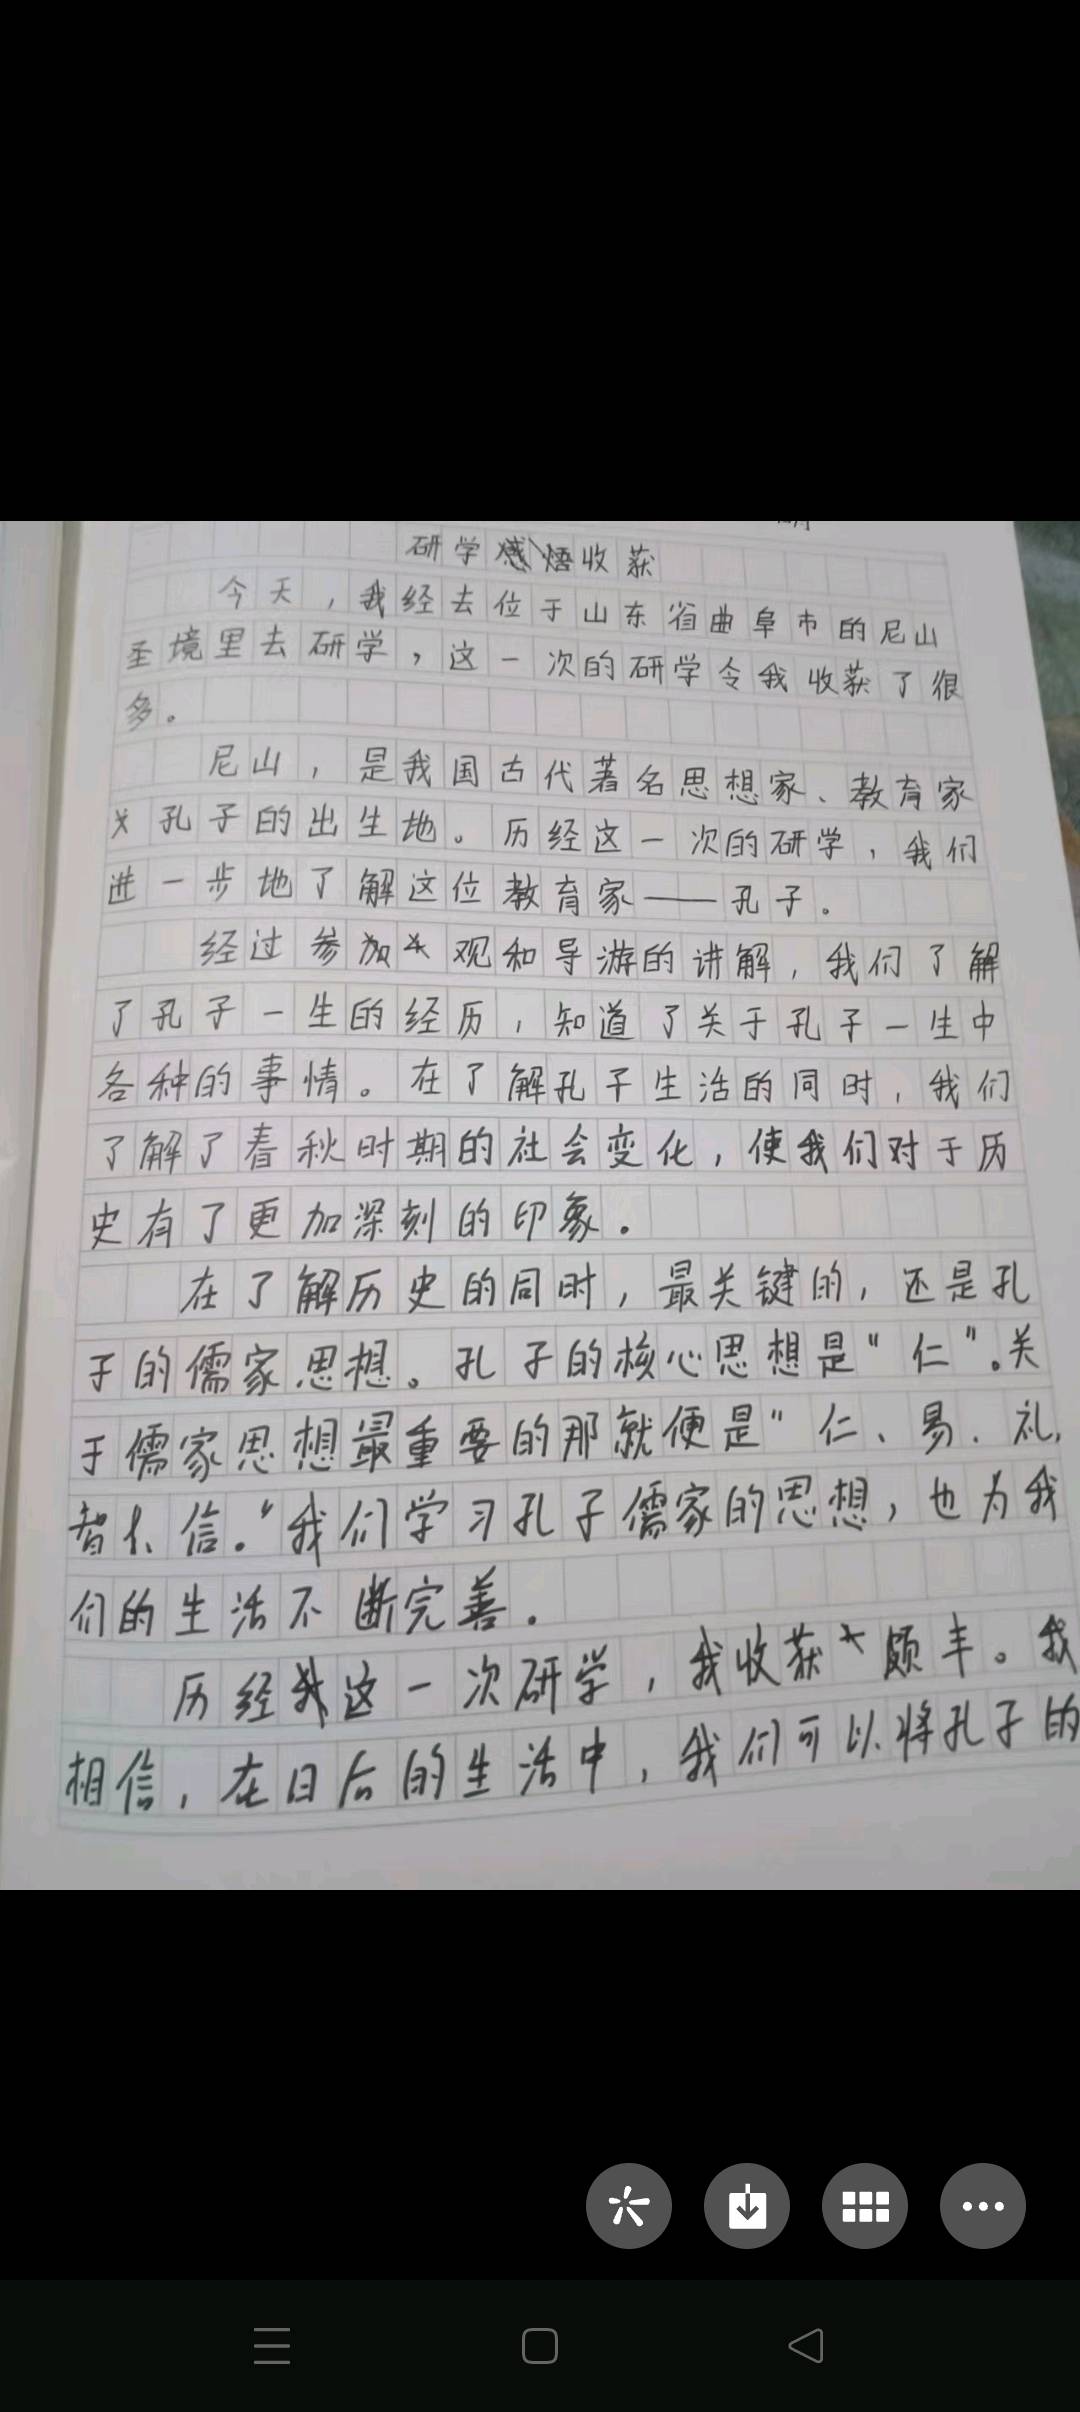 研学收获
今天，我经去位于山东省曲阜市的尼山
圣境里去研学，这一次的研学令我收获了很
多。
尼山，是我国古代著名思想家、教育家
孔子的出生地。历经这一次的研学，我们
进一步地了解这位教育家——孔子。
经过参观和导游的讲解，我们了解
了孔子一生的经历，知道了关于孔子一生中
各种的事情。在了解孔子生活的同时，我们
了解了春秋时期的社会变化，使我们对于历
史有了更加深刻的印象。
在了解历史的同时，最关键的，还是孔
子的儒家思想。孔子的核心思想是“仁”。关
于儒家思想最重要的那就便是“仁、易、礼、
智、信。”我们学习孔子儒家的思想，也为我
们的生活不断完善。
历经这一次研学，我收获颇丰。我
相信，在日后的生活中，我们可以将孔子的